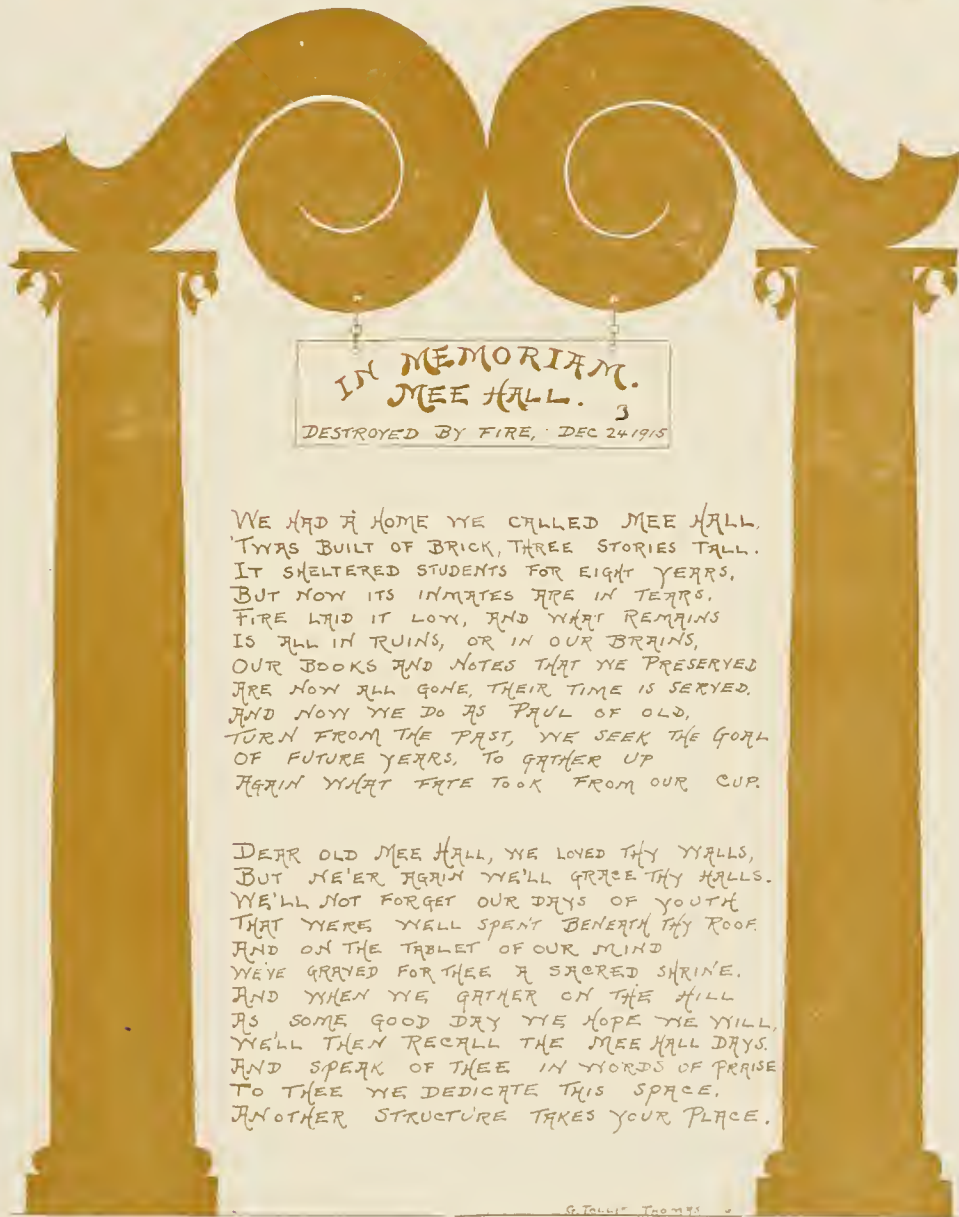 IN MEMORIAM.
MEE HALL.
3
DESTROYED BY FIRE, DEC 24 1915
WE HAD A HOME WE CALLED MEE HALL,
'TWAS BUILT OF BRICK, THREE STORIES TALL.
IT SHELTERED STUDENTS FOR EIGHT YEARS,
BUT NOW ITS INMATES ARE IN TEARS.
FIRE LAID IT LOW, AND WHAT REMAINS
IS ALL IN RUINS, OR IN OUR BRAINS,
OUR BOOKS AND NOTES THAT WE PRESERVED
ARE NOW ALL GONE, THEIR TIME IS SERVED.
AND NOW WE DO AS PAUL OF OLD,
TURN FROM THE PAST, WE SEEK THE GOAL
OF FUTURE YEARS, TO GATHER UP
AGAIN WHAT FATE TOOK FROM OUR CUP.
DEAR OLD MEE HALL, WE LOVED THY WALLS,
BUT NE'ER AGAIN WE'LL GRACE THY HALLS.
WE'LL NOT FORGET OUR DAYS OF YOUTH
THAT WERE WELL SPENT BENEATH THY ROOF.
AND ON THE TABLET OF OUR MIND
WE'VE GRAVED FOR THEE A SACRED SHRINE.
AND WHEN WE GATHER ON THE HILL
AS SOME GOOD DAY WE HOPE WE WILL,
WE'LL THEN RECALL THE MEE HALL DAYS.
AND SPEAK OF THEE IN WORDS OF PRAISE
TO THEE WE DEDICATE THIS SPACE.
ANOTHER STRUCTURE TAKES YOUR PLACE.
G. THOMAS